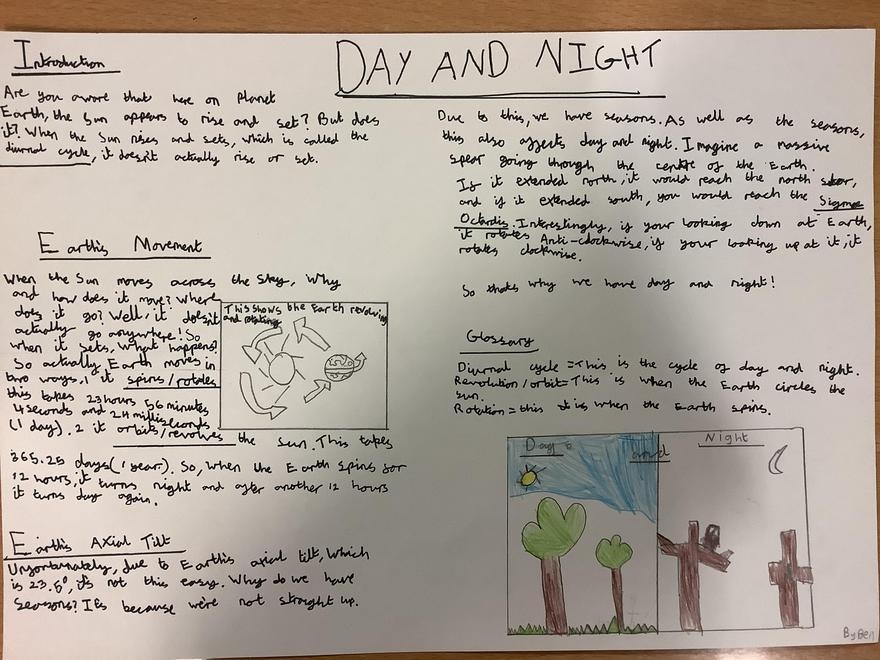 DAY AND NIGHT
Introduction
Are you aware that here on Planet
Earth, the Sun appears to rise and set? But does
it? When the Sun rises and sets, which is called the
diurnal cycle, it doesn't actually rise or set.
Earth's Movement
When the Sun moves across the sky, Why
and how does it move? Where
does it go? Well, it doesn't
actually go anywhere! So
when it sets, what happens?
So actually Earth moves in
two ways, 1 it spins/rotates
this takes 23 hours 56 minutes
4 seconds and 24 milliseconds
(1 day). 2 it orbits/revolves the sun. This takes
365.25 days (1 year). So, when the Earth spins for
12 hours, it turns night and after another 12 hours
it turns day again.
This shows the Earth revolving
and rotating
Earth's Axial Tilt
Unfortunately, due to Earth's axial tilt, Which
is 23.5°, it's not this easy. Why do we have
Seasons? It's because we're not straight up.
Due to this, we have seasons. As well as the seasons,
this also affects day and night. Imagine a massive
spear going through the centre of the Earth.
If it extended north, it would reach the north star,
and if it extended south, you would reach the Sigma
Octantis. Interestingly, if your looking down at Earth,
it rotates Anti-clockwise, if your looking up at it, it
rotates clockwise.
So thats why we have day and night!
Glossary
Diurnal cycle = This is the cycle of day and night.
Revolution/orbit = This is when the Earth circles the
sun.
Rotation = this is when the Earth spins.
Day
and
Night
By Ben